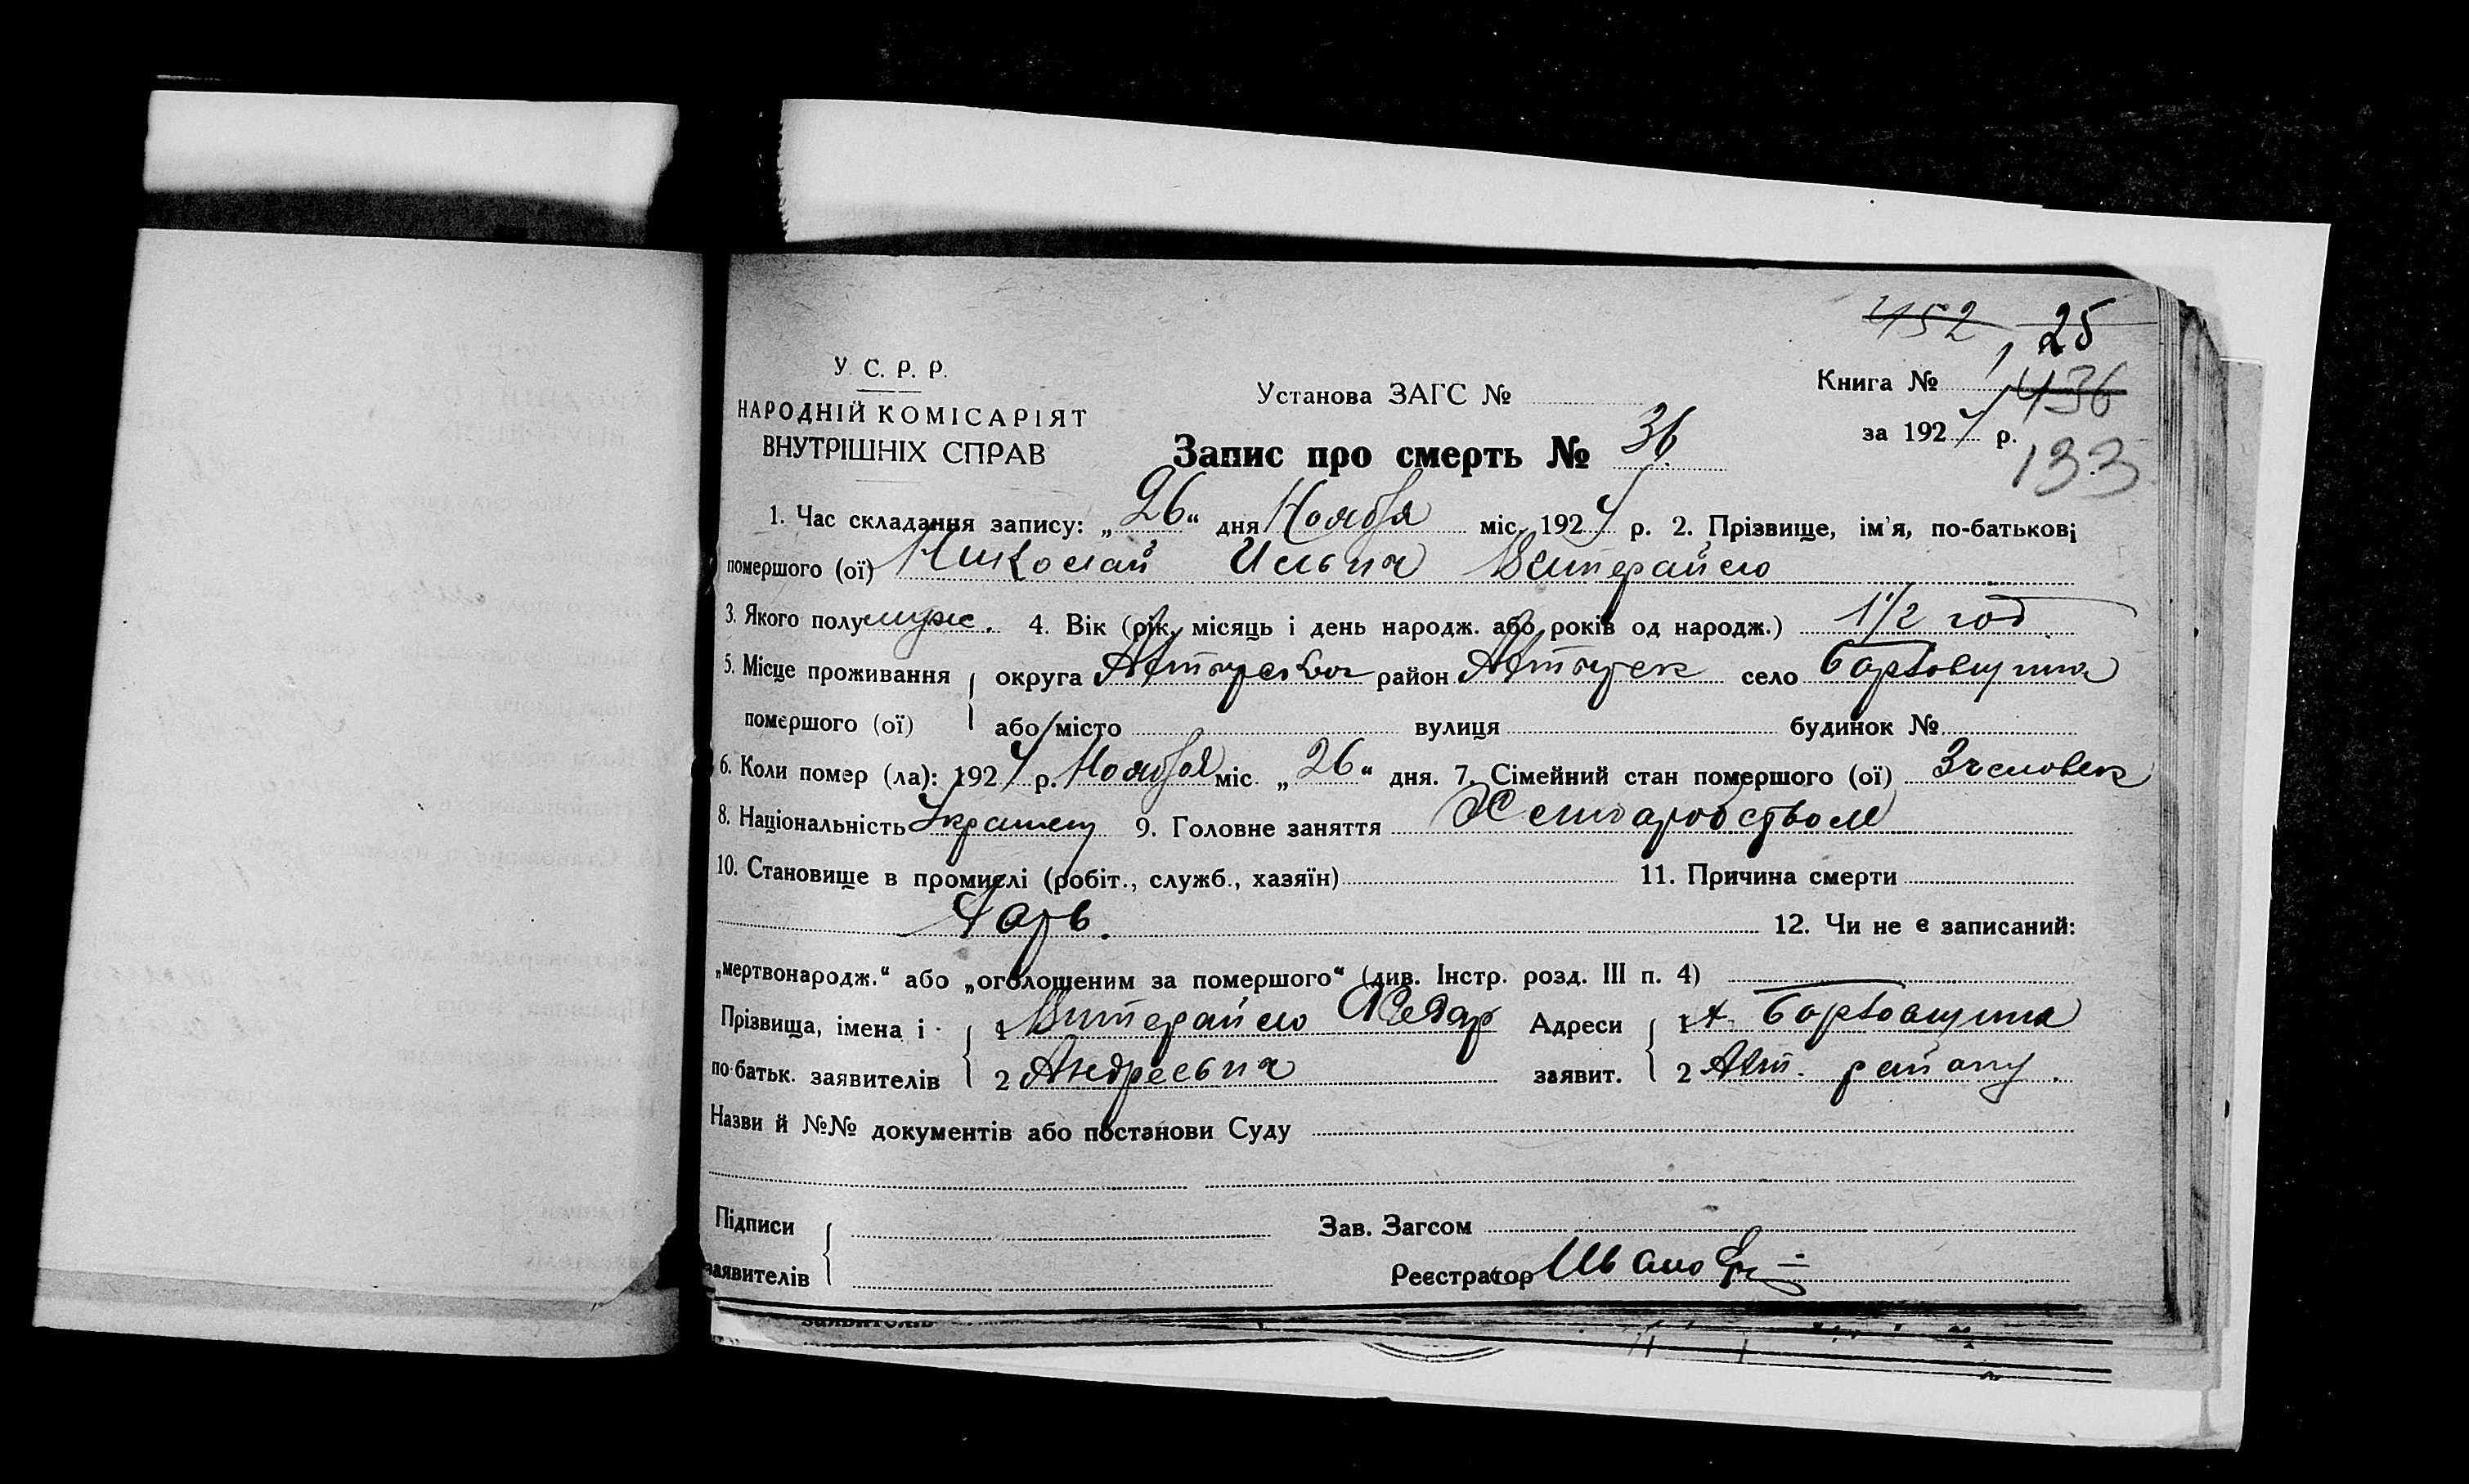 452 25
У. С. Р. Р.
НАРОДНІЙ КОМІСАРІЯТ
ВНУТРІШНІХ СПРАВ
Установа ЗАГС №
Книга № 1 436
за 1924 р.
133
Запис про смерть № 36
1. Час складання запису: „26“ дня Ноября міс. 1924 р. 2. Прізвище, ім'я, по-батькові
помершого (ої) Николай Ильич
3. Якого полу муж. 4. Вік (рік, місяць і день народж. або років од народж.) 1 1/2 год
5. Місце проживання округа район село
помершого (ої) або місто вулиця будинок №
6. Коли помер (ла): 1924 р. Ноября міс. „26“ дня. 7. Сімейний стан помершого (ої) 3 человек
8. Національність Украинец 9. Головне заняття
10. Становище в промислі (робіт., служб., хазяїн) 11. Причина смерти
12. Чи не є записаний:
„мертвонародж.“ або „оголошеним за помершого“ (див. Інстр. розд. III п. 4)
Прізвища, імена і 1 Адреси 1
по-батьк. заявителів 2 заявит. 2 району.
Назви й №№ документів або постанови Суду
Підписи Зав. Загсом
заявителів Реєстратор
заявителів